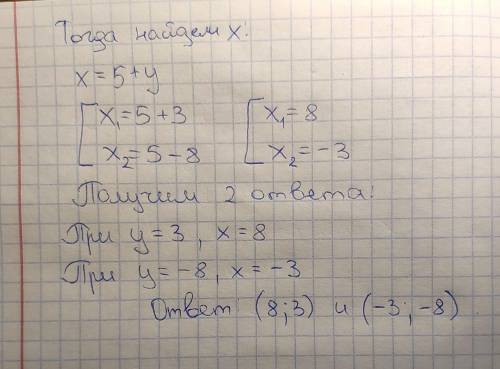 Тогда найдем x:
x = 5 + y
[ x₁ = 5 + 3 [ x₁ = 8
x₂ = 5 - 8 x₂ = -3
Получим 2 ответа:
При y = 3, x = 8
При y = -8, x = -3
Ответ: (8; 3) и (-3; -8).